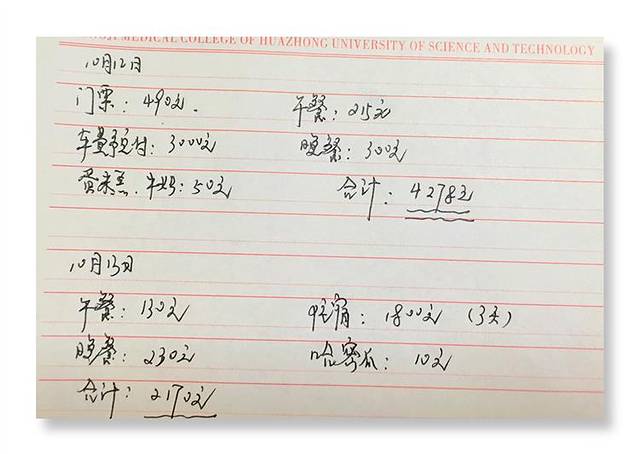 MEDICAL COLLEGE OF HUAZHONG UNIVERSITY OF SCIENCE AND TECHNOLOGY
10月12日
门票：490元. 午餐：215元
车费预付：3000元 晚餐：300元
蛋糕.牛奶：50元 合计：4278元
10月13日
午餐：130元 住宿：1800元（3天）
晚餐：230元 哈密瓜：10元
合计：2170元